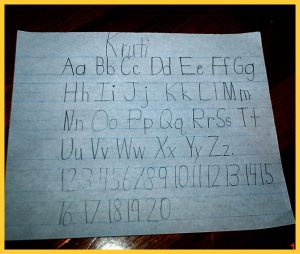 Krati
Aa Bb Cc Dd Ee Ff Gg
Hh Ii Jj Kk Ll Mm
Nn Oo Pp Qq Rr Ss Tt
Uu Vv Ww Xx Yy Zz.
1 2 3 4 5 6 7 8 9 10 11 12 13 14 15
16 17 18 19 20
1